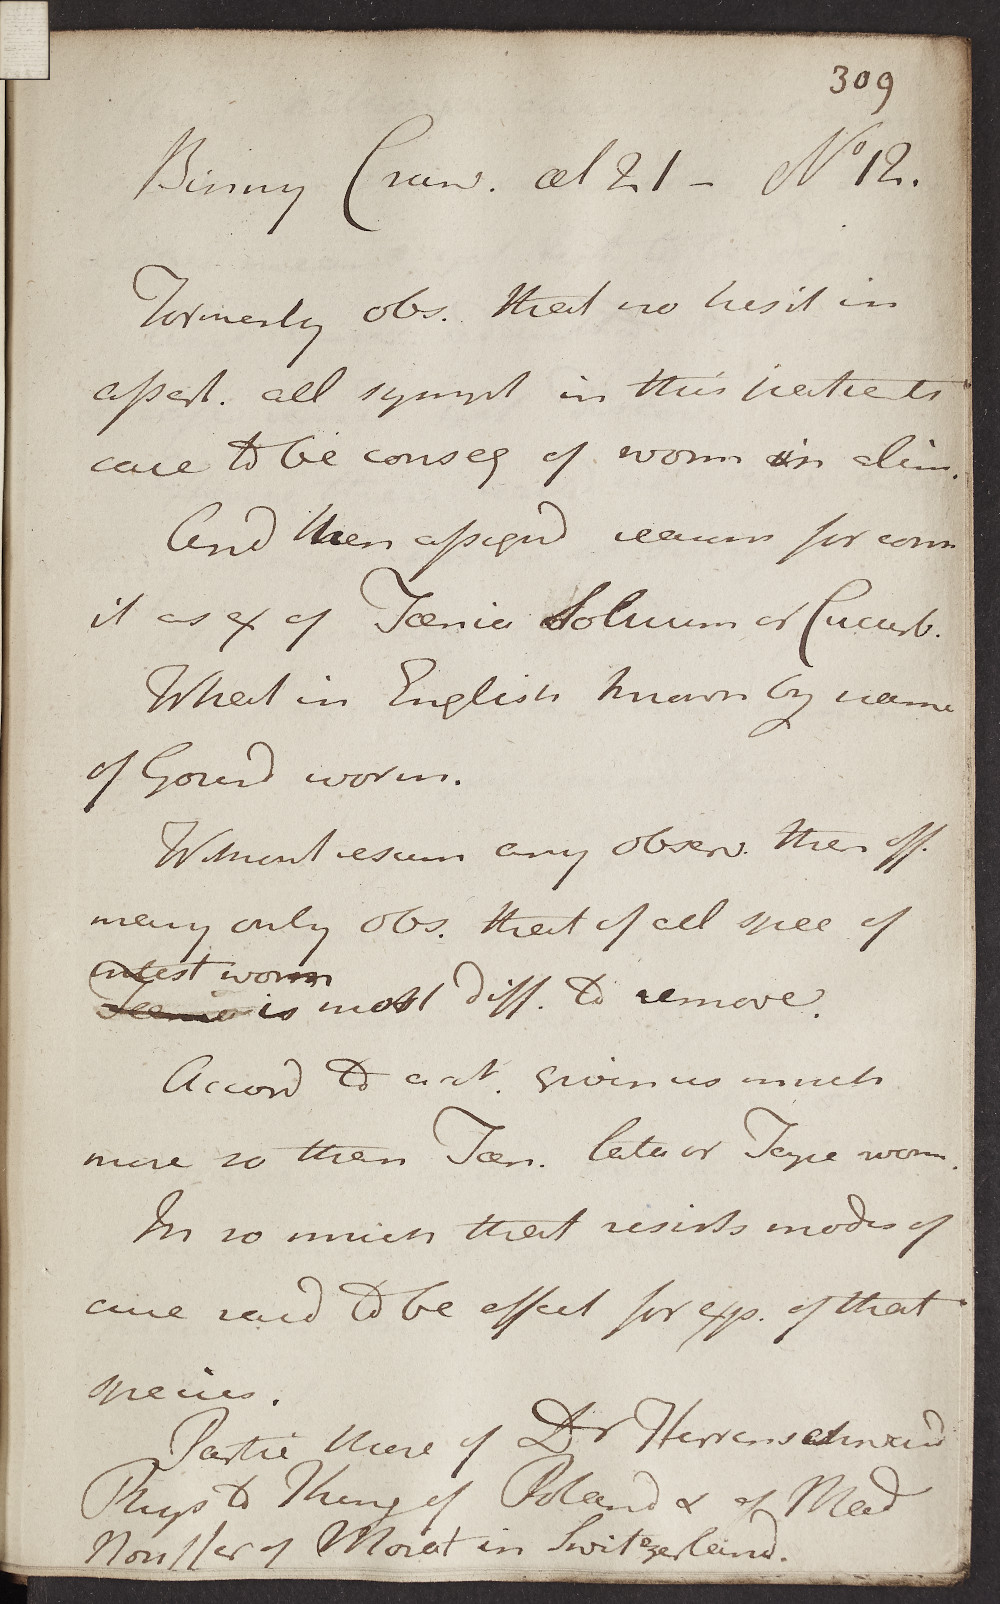 309
Binny Craw. æt 21 - No 12.
Formerly obs. that no hesit in
assert. all sympt in this patients
case to be conseq of worm in alim.
And then assignd reasons for conn
it as ex of Tænia Solium or Cucurb.
What in English known by name
of Gourd worm.
Without resum any observ. then off.
many only obs. that of all spec of
intest worm
Tænia is most diff. to remove.
Accord to acct. given us much
more so then Tæn. lata or Tape worm.
In so much that resists modes of
cure said to be effect for exp. of that
species.
Partic those of Dr Herrenschwand
Phys to King of Poland & of Mad
Nouffer of Morat in Switzerland.